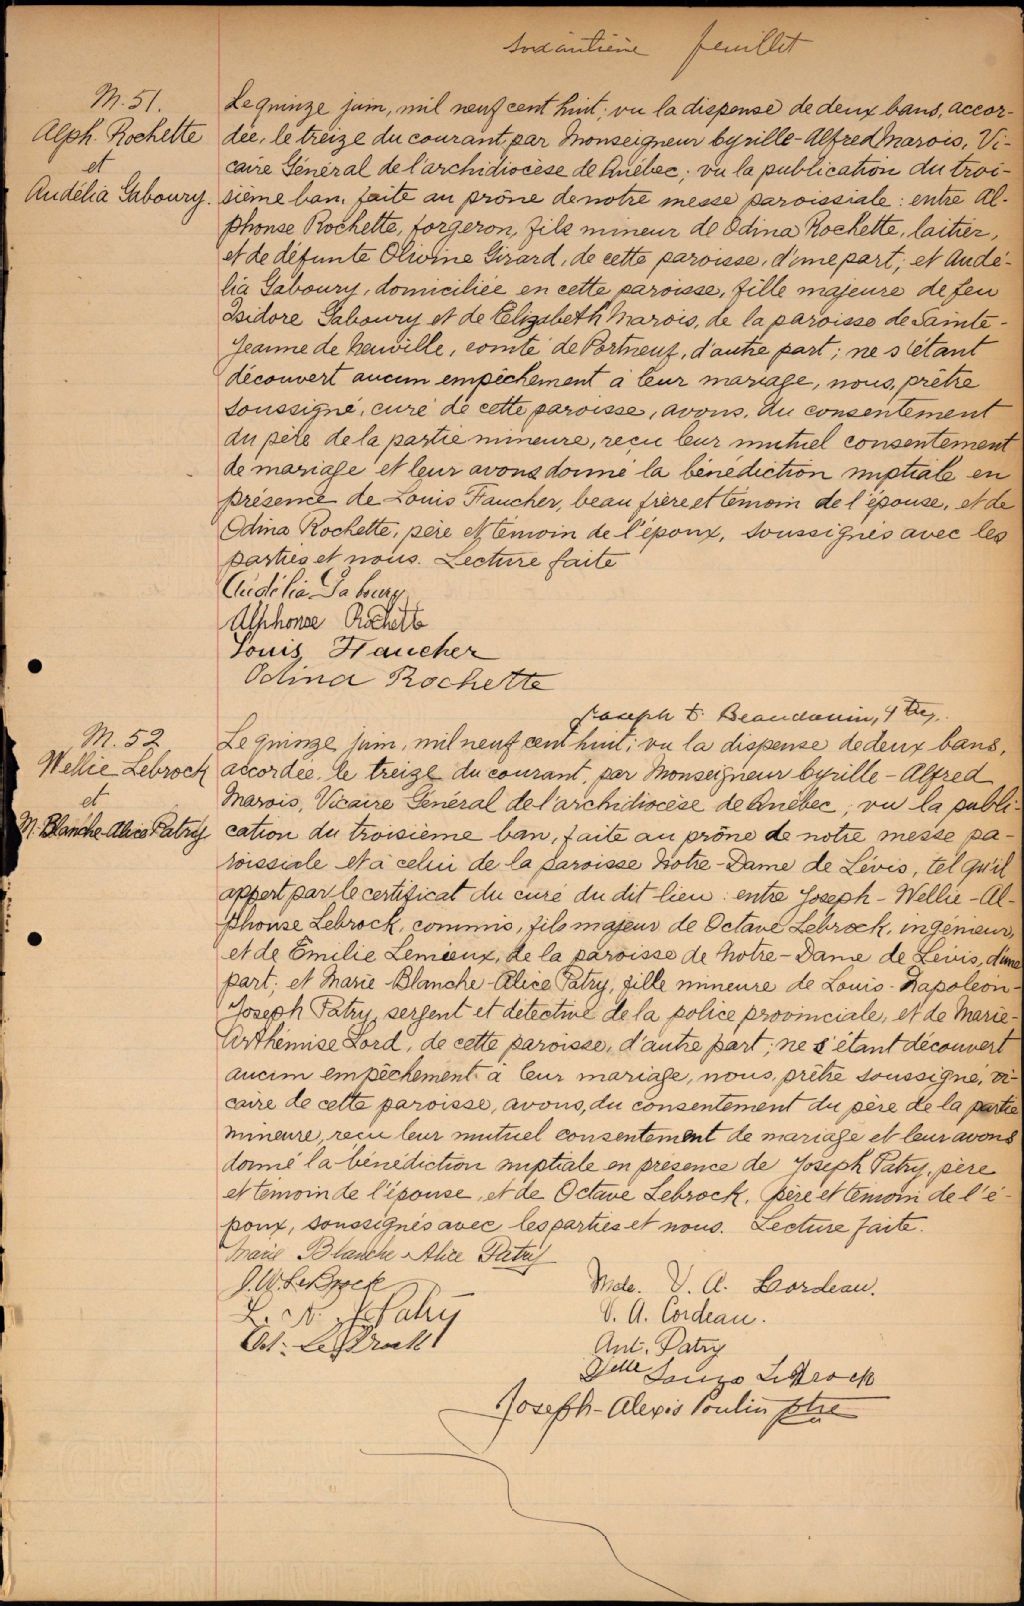 soixantième feuillet
M. 51.
Alph. Rochette
et
Audélia Gaboury.
Le quinze juin, mil neuf cent huit; vu la dispense de deux bans, accor-
dée, le treize du courant, par Monseigneur Cyrille-Alfred Marois, Vi-
caire Général de l'archidiocèse de Québec; vu la publication du troi-
sième ban, faite au prône de notre messe paroissiale: entre Al-
phonse Rochette, forgeron, fils mineur de Odina Rochette, laitier,
et de défunte Olivine Girard, de cette paroisse, d'une part; et Audé-
lia Gaboury, domiciliée en cette paroisse, fille majeure de feu
Isidore Gaboury et de Elizabeth Marois, de la paroisse de Sainte-
Jeanne de Neuville, comté de Portneuf, d'autre part; ne s'étant
découvert aucun empêchement à leur mariage, nous, prêtre
soussigné, curé de cette paroisse, avons, du consentement
du père de la partie mineure, reçu leur mutuel consentement
de mariage et leur avons donné la bénédiction nuptiale en
présence de Louis Faucher, beau frère et témoin de l'épouse, et de
Odina Rochette, père et témoin de l'époux, soussignés avec les
parties et nous. Lecture faite
Audélia Gaboury
Alphonse Rochette
Louis Faucher
Odina Rochette
Joseph E. Beaudouin, Ptre.
M. 52
Wellie Lebrock
et
M. Blanche-Alice Patry
Le quinze juin, mil neuf cent huit; vu la dispense de deux bans,
accordée, le treize du courant, par Monseigneur Cyrille-Alfred
Marois, Vicaire Général de l'archidiocèse de Québec; vu la publi-
cation du troisième ban, faite au prône de notre messe pa-
roissiale et à celui de la paroisse Notre-Dame de Lévis, tel qu'il
appert par le certificat du curé du dit lieu: entre Joseph-Wellie-Al-
phonse Lebrock, commis, fils majeur de Octave Lebrock, ingénieur,
et de Emilie Lemieux, de la paroisse de Notre-Dame de Lévis, d'une
part; et Marie-Blanche-Alice Patry, fille mineure de Louis-Napoléon-
Joseph Patry, sergent et détective de la police provinciale, et de Marie-
Arthémise Lord, de cette paroisse, d'autre part; ne s'étant découvert
aucun empêchement à leur mariage, nous, prêtre soussigné, vi-
caire de cette paroisse, avons, du consentement du père de la partie
mineure, reçu leur mutuel consentement de mariage et leur avons
donné la bénédiction nuptiale en présence de Joseph Patry, père
et témoin de l'épouse, et de Octave Lebrock, père et témoin de l'é-
poux, soussignés avec les parties et nous. Lecture faite.
Marie Blanche Alice Patry
J. W. LeBrock
L. N. J. Patry
Oct. LeBrock
Mde. V. A. Cordeau.
V. A. Cordeau.
Ant. Patry
Delle LeBrock
Joseph-Alexis Poulin ptre